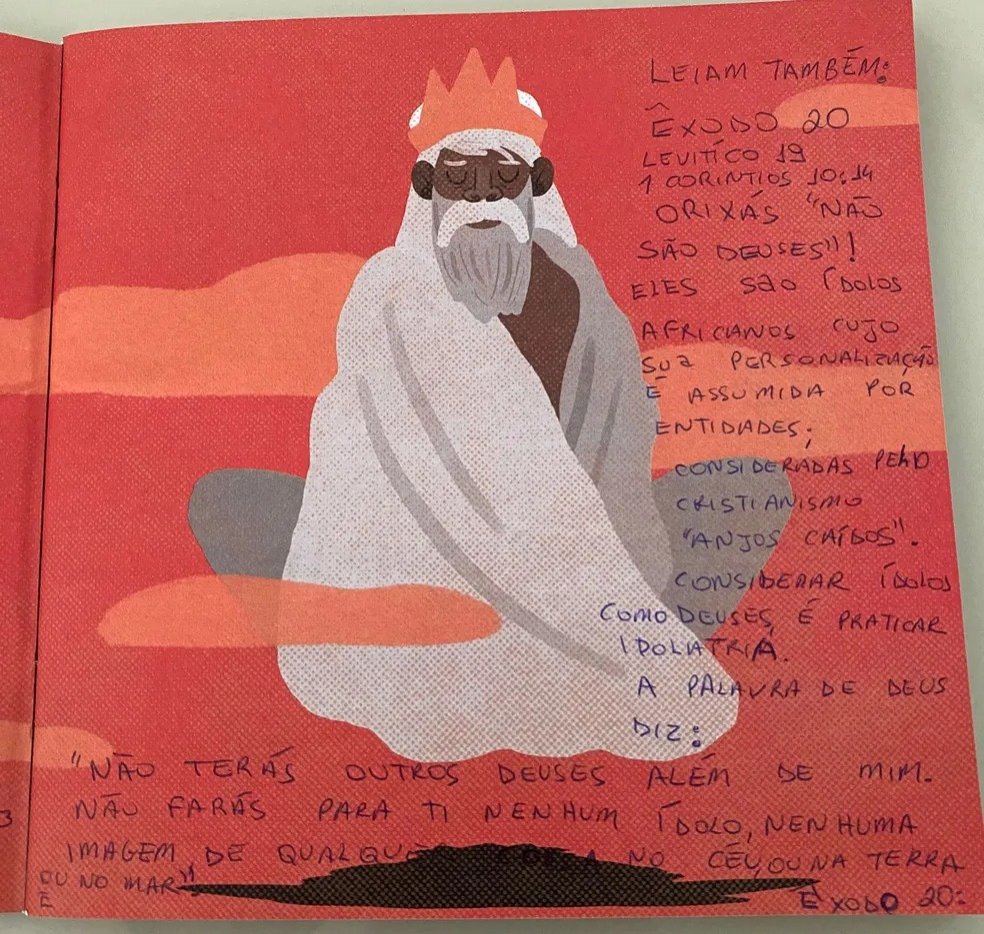 LEIAM TAMBÉM:
ÊXODO 20
LEVITÍCO 19
1 CORINTIOS 10:14
ORIXÁS "NÃO
SÃO DEUSES"!
ELES SÃO ÍDOLOS
AFRICANOS CUJO
SUA PERSONALIZAÇÃO
É ASSUMIDA POR
ENTIDADES;
CONSIDERADAS PELO
CRISTIANISMO
"ANJOS CAÍDOS".
CONSIDERAR ÍDOLOS
COMO DEUSES, É PRATICAR
IDOLIATRIA.
A PALAVRA DE DEUS
DIZ:
"NÃO TERÁS OUTROS DEUSES ALÉM DE MIM.
NÃO FARÁS PARA TI NENHUM ÍDOLO, NENHUMA
IMAGEM DE QUALQUER NO CÉU, OU NA TERRA
OU NO MAR"
É ÊXODO 20:
3